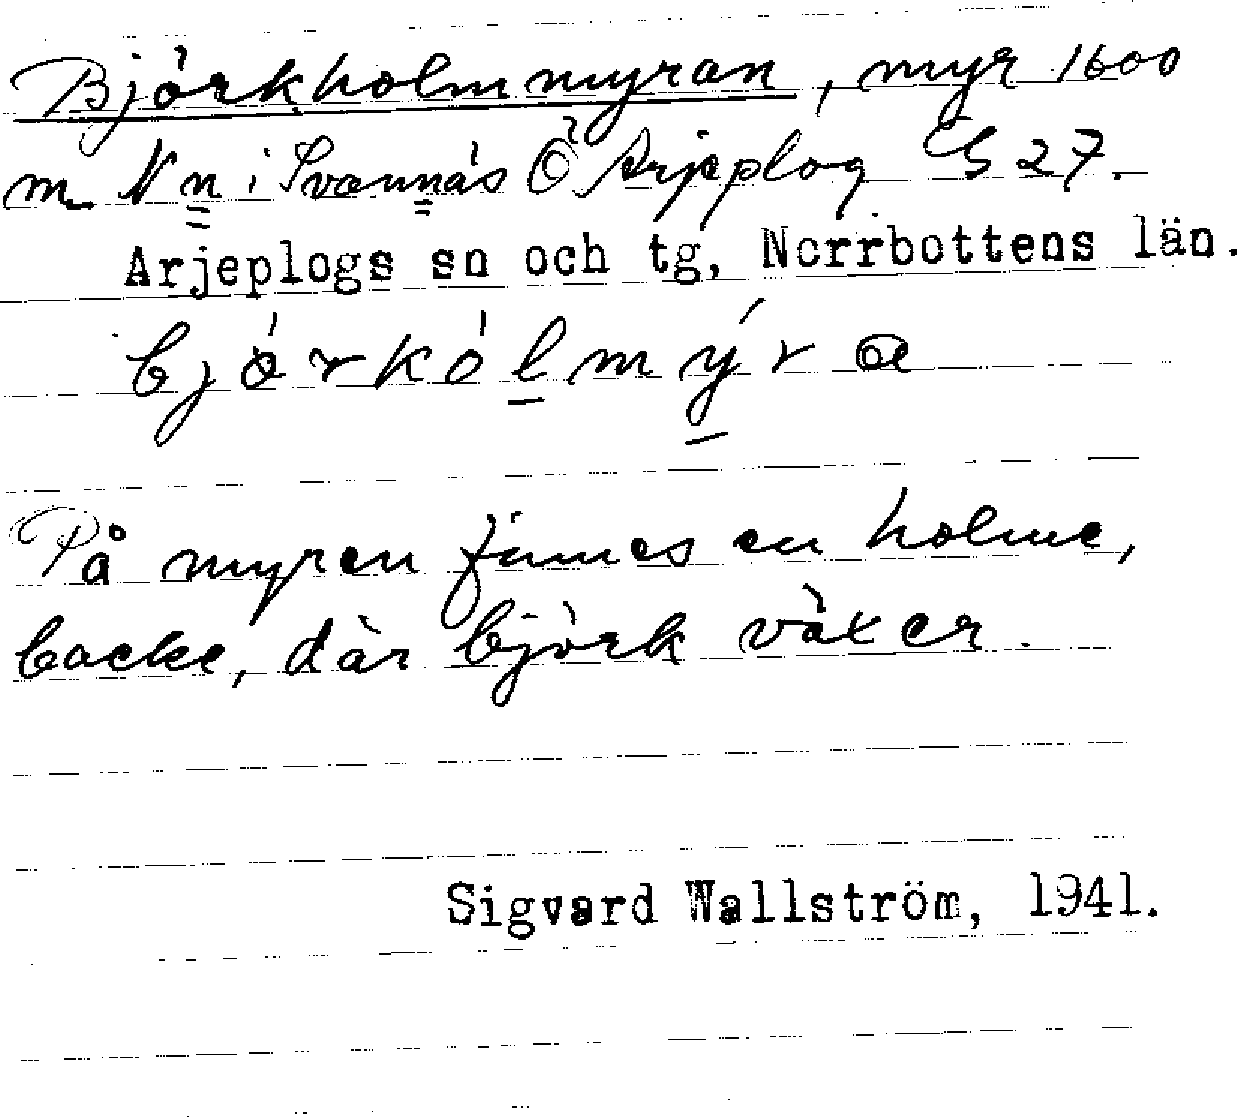 Björkholmmyran, myr 1600
m N n i Svannäs Ö Arjeplog G 27.
Arjeplogs sn och tg, Norrbottens län.
bjö̀rkó̀lmýra
På myren finnes en holme,
backe, där björk växer.
Sigvard Wallström, 1941.